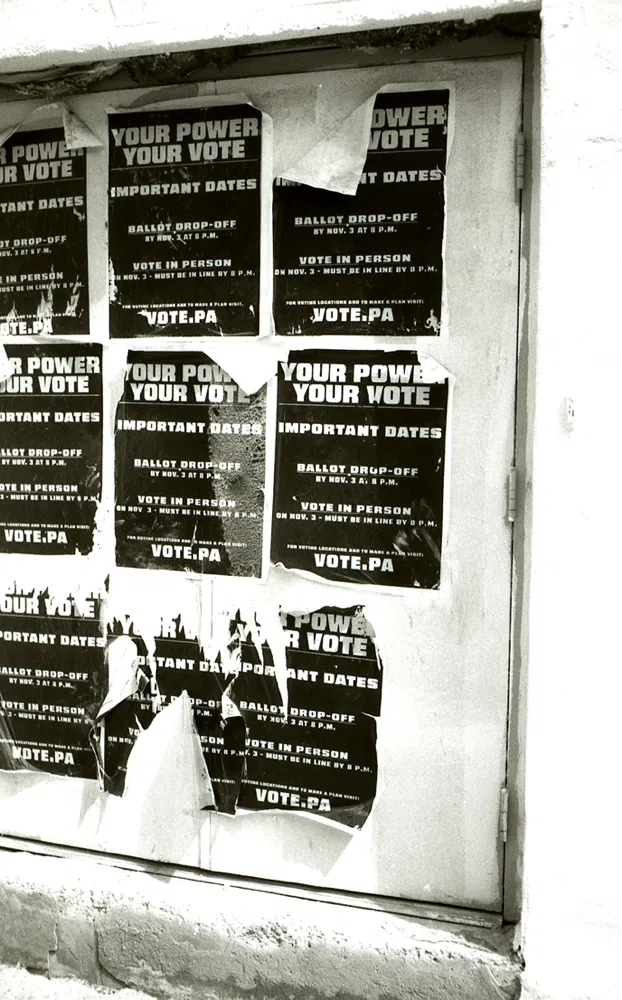 R POWER
UR VOTE
TANT DATES
OT DROP-OFF
OV. 3 AT 8 P.M.
E IN PERSON
MUST BE IN LINE BY 8 P.M.
OTE.PA
YOUR POWER
YOUR VOTE
IMPORTANT DATES
BALLOT DROP-OFF
BY NOV. 3 AT 8 P.M.
VOTE IN PERSON
ON NOV. 3 - MUST BE IN LINE BY 8 P.M.
FOR VOTING LOCATIONS AND TO MAKE A PLAN VISIT:
VOTE.PA
OWER
VOTE
IM NT DATES
BALLOT DROP-OFF
BY NOV. 3 AT 8 P.M.
VOTE IN PERSON
ON NOV. 3 - MUST BE IN LINE BY 8 P.M.
FOR VOTING LOCATIONS AND TO MAKE A PLAN VISIT:
VOTE.PA
R POWER
OUR VOTE
ORTANT DATES
ALLOT DROP-OFF
BY NOV. 3 AT 8 P.M.
OTE IN PERSON
3 - MUST BE IN LINE BY 8 P.M.
NG LOCATIONS AND TO MAKE A PLAN VISIT:
VOTE.PA
YOUR POW
YOUR VOTE
IMPORTANT DATES
BALLOT DROP-OFF
BY NOV. 3 AT 8 P.M.
VOTE IN PERSON
ON NOV. 3 - MUST BE IN LINE BY 8 P.M.
FOR VOTING LOCATIONS AND TO MAKE A PLAN VISIT:
VOTE.PA
YOUR POWER
YOUR VOTE
IMPORTANT DATES
BALLOT DROP-OFF
BY NOV. 3 AT 8 P.M.
VOTE IN PERSON
ON NOV. 3 - MUST BE IN LINE BY 8 P.M.
FOR VOTING LOCATIONS AND TO MAKE A PLAN VISIT:
VOTE.PA
OUR VOTE
PORTANT DATES
BALLOT DROP-OFF
BY NOV. 3 AT 8 P.M.
VOTE IN PERSON
3 - MUST BE IN LINE BY 8
VOTING LOCATIONS AND TO MAKE A PLAN VISIT:
VOTE.PA
TANT DA
POWE
R VOTE
IMPOR ANT DATES
BALLOT DROP-OFF
BY NOV. 3 AT 8 P.M.
VOTE IN PERSON
3 - MUST BE IN LINE BY 8 P.M.
VOTING LOCATIONS AND TO MAKE A PLAN VISIT:
VOTE.PA